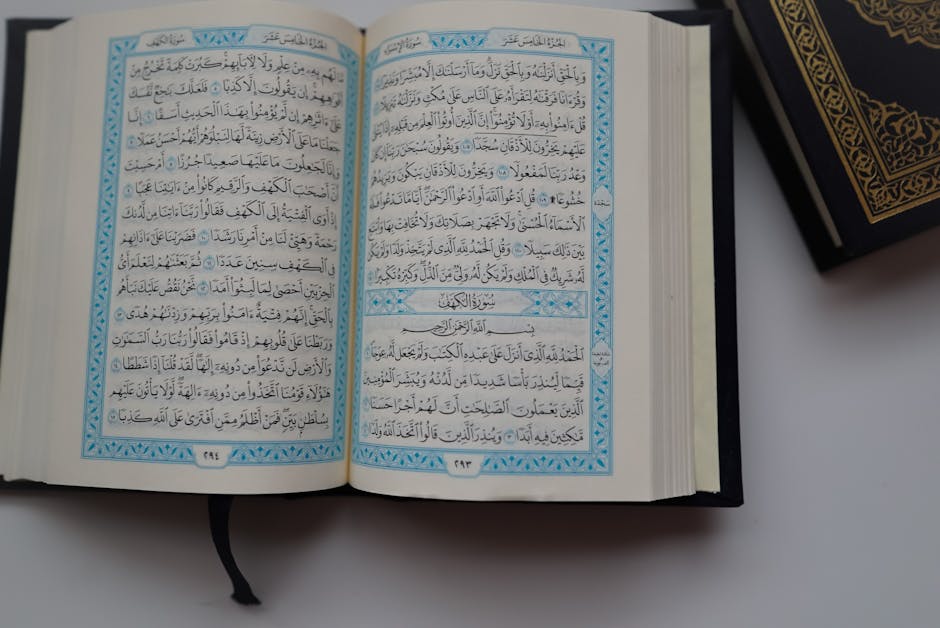 سُورَةُ الإِسْرَاءِ
الجُزْءُ الخَامِسَ عَشَرَ
وَبِالْحَقِّ أَنزَلْنَاهُ وَبِالْحَقِّ نَزَلَ وَمَا أَرْسَلْنَاكَ إِلَّا مُبَشِّرًا وَنَذِيرًا ١٠٥
وَقُرْءَانًا فَرَقْنَاهُ لِتَقْرَأَهُ عَلَى النَّاسِ عَلَىٰ مُكْثٍ وَنَزَّلْنَاهُ تَنزِيلًا ١٠٦
قُلْ ءَامِنُوا بِهِ أَوْ لَا تُؤْمِنُوا إِنَّ الَّذِينَ أُوتُوا الْعِلْمَ مِن قَبْلِهِ إِذَا يُتْلَىٰ
عَلَيْهِمْ يَخِرُّونَ لِلْأَذْقَانِ سُجَّدًا ١٠٧ وَيَقُولُونَ سُبْحَانَ رَبِّنَا إِن كَانَ
وَعْدُ رَبِّنَا لَمَفْعُولًا ١٠٨ وَيَخِرُّونَ لِلْأَذْقَانِ يَبْكُونَ وَيَزِيدُهُمْ
خُشُوعًا ۩ ١٠٩ قُلِ ادْعُوا اللَّهَ أَوِ ادْعُوا الرَّحْمَٰنَ أَيًّا مَّا تَدْعُوا فَلَهُ
الْأَسْمَاءُ الْحُسْنَىٰ وَلَا تَجْهَرْ بِصَلَاتِكَ وَلَا تُخَافِتْ بِهَا وَابْتَغِ
بَيْنَ ذَٰلِكَ سَبِيلًا ١١٠ وَقُلِ الْحَمْدُ لِلَّهِ الَّذِي لَمْ يَتَّخِذْ وَلَدًا وَلَمْ يَكُن
لَّهُ شَرِيكٌ فِي الْمُلْكِ وَلَمْ يَكُن لَّهُ وَلِيٌّ مِّنَ الذُّلِّ وَكَبِّرْهُ تَكْبِيرًا ١١١
سُورَةُ الْكَهْفِ
بِسْمِ اللَّهِ الرَّحْمَٰنِ الرَّحِيمِ
الْحَمْدُ لِلَّهِ الَّذِي أَنزَلَ عَلَىٰ عَبْدِهِ الْكِتَابَ وَلَمْ يَجْعَل لَّهُ عِوَجًا ١
قَيِّمًا لِّيُنذِرَ بَأْسًا شَدِيدًا مِّن لَّدُنْهُ وَيُبَشِّرَ الْمُؤْمِنِينَ
الَّذِينَ يَعْمَلُونَ الصَّالِحَاتِ أَنَّ لَهُمْ أَجْرًا حَسَنًا ٢
مَّاكِثِينَ فِيهِ أَبَدًا ٣ وَيُنذِرَ الَّذِينَ قَالُوا اتَّخَذَ اللَّهُ وَلَدًا ٤
سَجْدَة
٢٩٣
سُورَةُ الكَهْفِ
الجُزْءُ الخَامِسَ عَشَرَ
مَّا لَهُم بِهِ مِنْ عِلْمٍ وَلَا لِآبَائِهِمْ كَبُرَتْ كَلِمَةً تَخْرُجُ مِنْ
أَفْوَاهِهِمْ إِن يَقُولُونَ إِلَّا كَذِبًا ٥ فَلَعَلَّكَ بَاخِعٌ نَّفْسَكَ
عَلَىٰ ءَاثَارِهِمْ إِن لَّمْ يُؤْمِنُوا بِهَٰذَا الْحَدِيثِ أَسَفًا ٦ إِنَّا
جَعَلْنَا مَا عَلَى الْأَرْضِ زِينَةً لَّهَا لِنَبْلُوَهُمْ أَيُّهُمْ أَحْسَنُ عَمَلًا ٧
وَإِنَّا لَجَاعِلُونَ مَا عَلَيْهَا صَعِيدًا جُرُزًا ٨ أَمْ حَسِبْتَ
أَنَّ أَصْحَابَ الْكَهْفِ وَالرَّقِيمِ كَانُوا مِنْ ءَايَاتِنَا عَجَبًا ٩
إِذْ أَوَى الْفِتْيَةُ إِلَى الْكَهْفِ فَقَالُوا رَبَّنَا ءَاتِنَا مِن لَّدُنكَ
رَحْمَةً وَهَيِّئْ لَنَا مِنْ أَمْرِنَا رَشَدًا ١٠ فَضَرَبْنَا عَلَىٰ ءَاذَانِهِمْ
فِي الْكَهْفِ سِنِينَ عَدَدًا ١١ ثُمَّ بَعَثْنَاهُمْ لِنَعْلَمَ أَيُّ
الْحِزْبَيْنِ أَحْصَىٰ لِمَا لَبِثُوا أَمَدًا ١٢ نَّحْنُ نَقُصُّ عَلَيْكَ نَبَأَهُم
بِالْحَقِّ إِنَّهُمْ فِتْيَةٌ ءَامَنُوا بِرَبِّهِمْ وَزِدْنَاهُمْ هُدًى ١٣
وَرَبَطْنَا عَلَىٰ قُلُوبِهِمْ إِذْ قَامُوا فَقَالُوا رَبُّنَا رَبُّ السَّمَاوَاتِ
وَالْأَرْضِ لَن نَّدْعُوَا مِن دُونِهِ إِلَٰهًا لَّقَدْ قُلْنَا إِذًا شَطَطًا ١٤
هَٰؤُلَاءِ قَوْمُنَا اتَّخَذُوا مِن دُونِهِ ءَالِهَةً لَّوْلَا يَأْتُونَ عَلَيْهِم
بِسُلْطَانٍ بَيِّنٍ فَمَنْ أَظْلَمُ مِمَّنِ افْتَرَىٰ عَلَى اللَّهِ كَذِبًا ١٥
٢٩٤